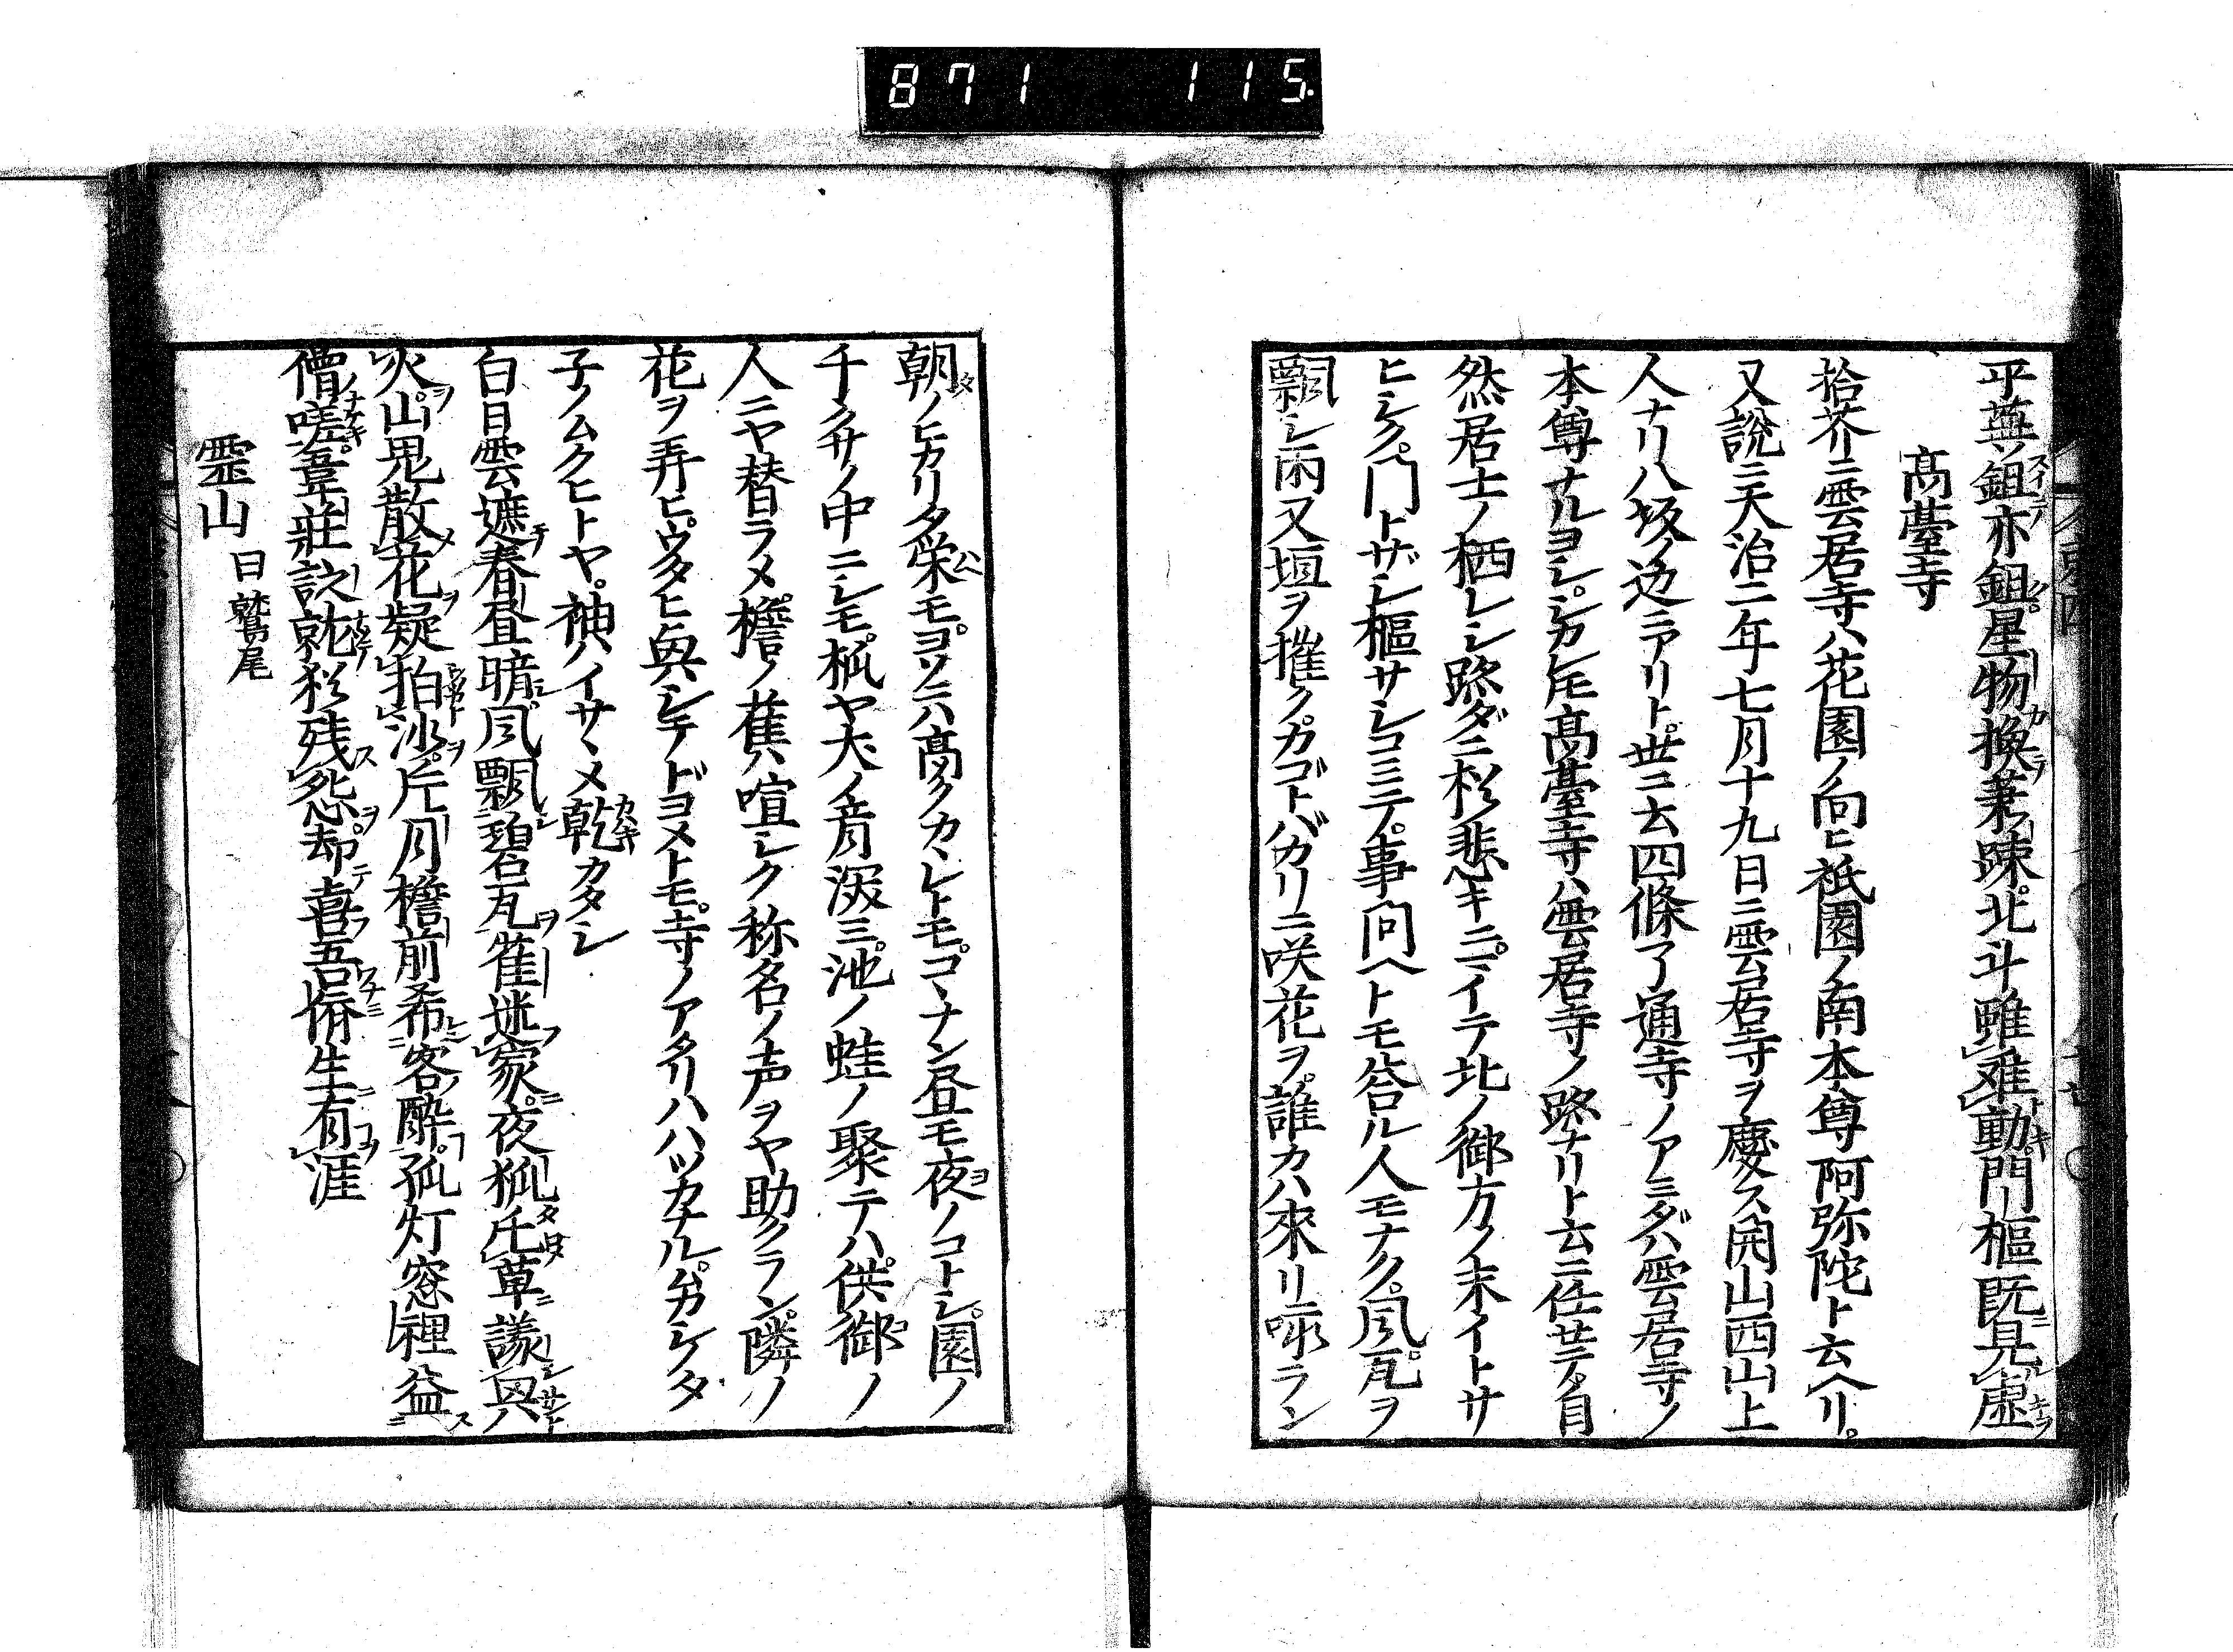 871 115
平蕪鉏亦鉏星物換兼疎北斗雖难動門樞既見虚
髙臺寺
拾芥ニ雲居寺ハ花園ノ向ヒ祇園ノ南本尊阿弥陀ト云ヘリ。
又說ニ天治二年七月十九日ニ雲居寺ヲ慶ス開山西山上
人ナリ八坂ノ辺ニアリト。世ニ云四條了通寺ノアミダハ雲居寺ノ
本尊ナルヨシ。シカレ𪜈髙臺寺ハ雲居寺ノ跡ナリト云ニ任セテ自
然居士ノ栖レシ跡ダニ杉悲キニ。イテ北ノ御方ノ末イトサ
ヒシク。門トザシ樞サシコミテ。事问ヘトモ答ル人モナク。風瓦ヲ
飄シ雨又垣ヲ摧ク。カゴトバカリニ咲花ヲ。誰カハ來リ詠ラン
朝ノヒカリタ栄モ。ヨソニハ髙クカヽレトモ。コヽナン昼モ夜ノコトシ。園ノ
千クサノ中ニシモ。狐ヤ犬ノ音深ミ。池ノ蛙ノ聚テハ。供御ノ
人ニヤ替ラメ。檐ノ雀ハ喧シク称名ノ声ヲヤ助クラン。隣ノ
花ヲ弄ヒ。ウタヒ與シテドヨメトモ。寺ノアタリハハツカナル。ムカシケタ
子ノムクヒトヤ。袖ハイサヽメ乾カタシ
白日雲遮春昼暗風飄碧瓦雀迷家。夜狐乇草議與
火。山鬼散花疑拍沙。片月檐前希客酔。孤灯窓裡益
僧嗟。韋莊試就彩残怨。却喜吾儕生有涯
霊山 日鷲尾